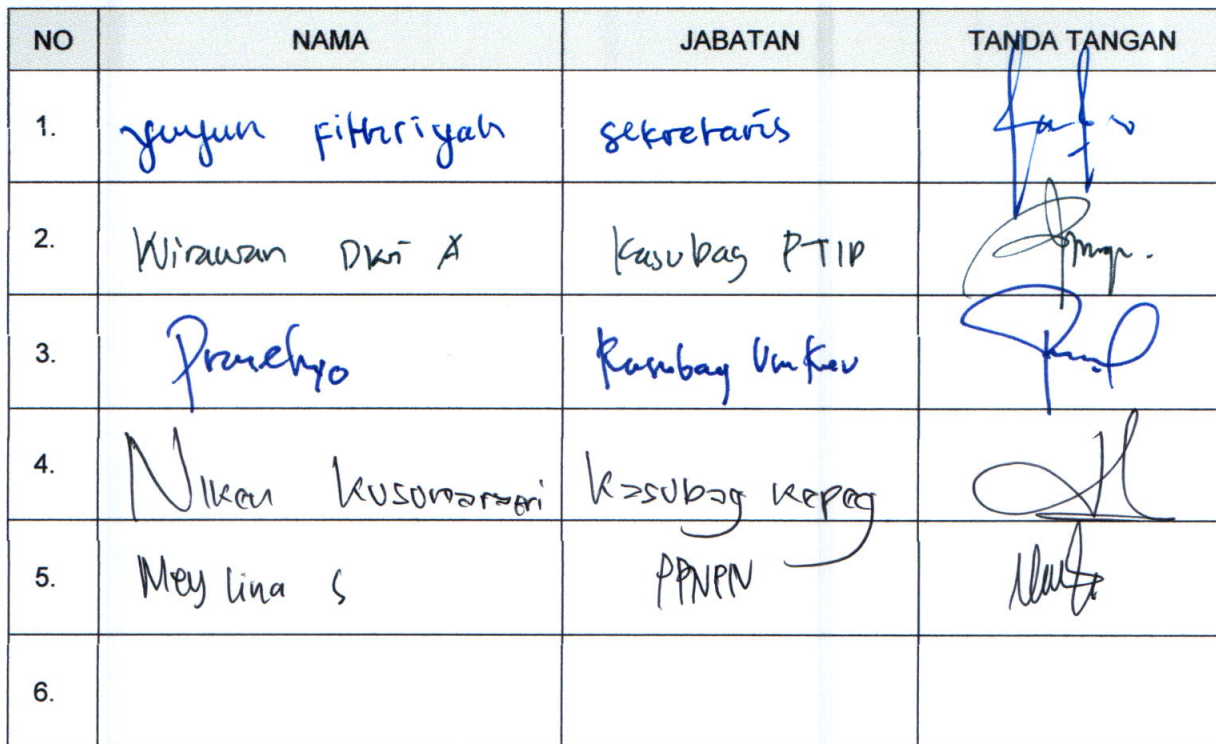 NO NAMA JABATAN TANDA TANGAN
1. Yuyun Fithriyah sekretaris
2. Wirawan Dwi A Kasubag PTIP
3. Prasetyo Kasubag Umkeu
4. Niken Kusumarastri Kasubag Kepeg
5. Mey lina S PPNPN
6.